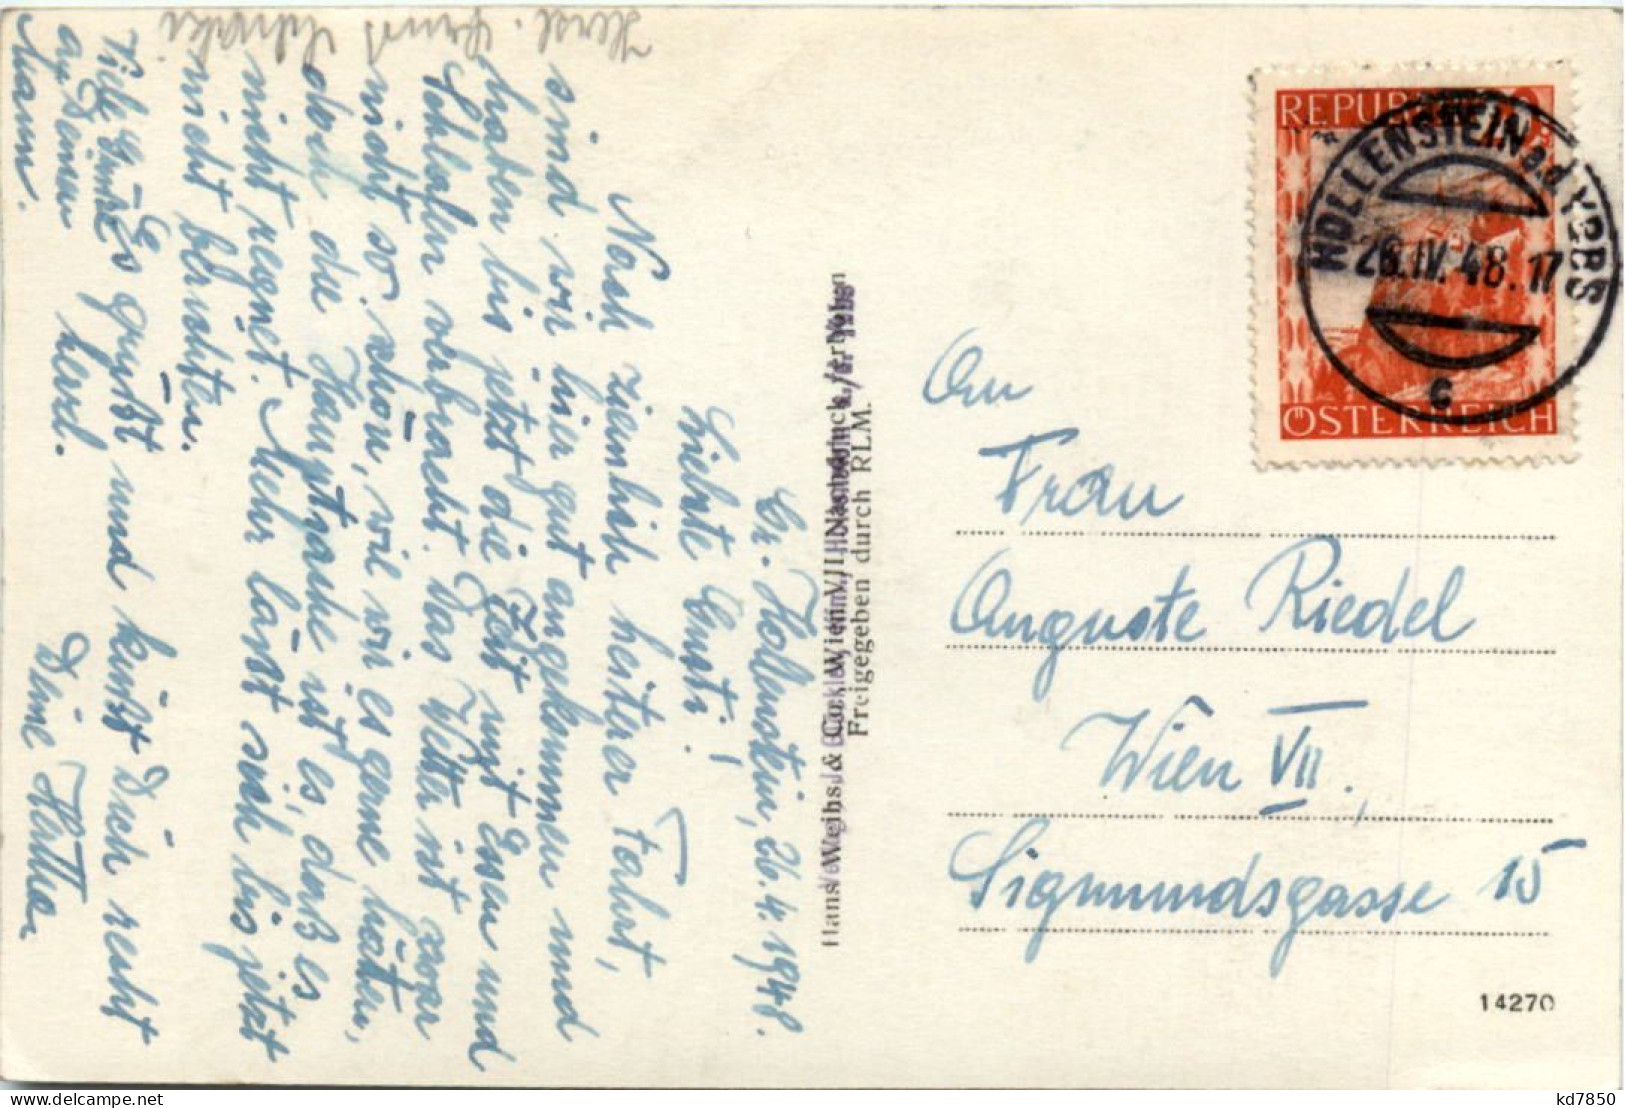 Gr. Hollenstein, 26.4.1948.
Liebste Gusti!
Nach ziemlich heiterer Fahrt,
sind wir hier gut angekommen und
haben bis jetzt die Zeit mit Essen und
Schlafen verbracht. Das Wetter ist zwar
nicht so schön, wie wir es gerne hätten,
doch die Hauptsache ist es, daß es
nicht regnet. Mehr läßt sich bis jetzt
nicht berichten.
Es grüßt und küßt Dich recht
herzl. Deine Hertha
Viele Grüße
an Deinen
Mann.
Herzl.
REPUBLIK
ÖSTERREICH
HOLLENSTEIN a.d. YBBS
26.IV.48.17
c
An
Frau
Auguste Riedel
Wien VII.,
Sigmundsgasse 15
14270
Hans Weihs & Co., Wien VII. Nachdruck verboten
Freigegeben durch RLM.
kd7850